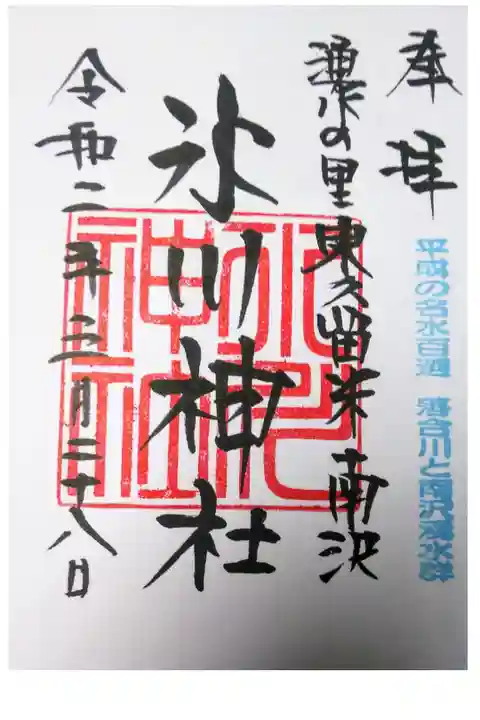 奉拝
平成の名水百選 落合川と南沢湧水群
湧水の里東久留米南沢
氷川神社
氷川神社
令和二年三月二十八日